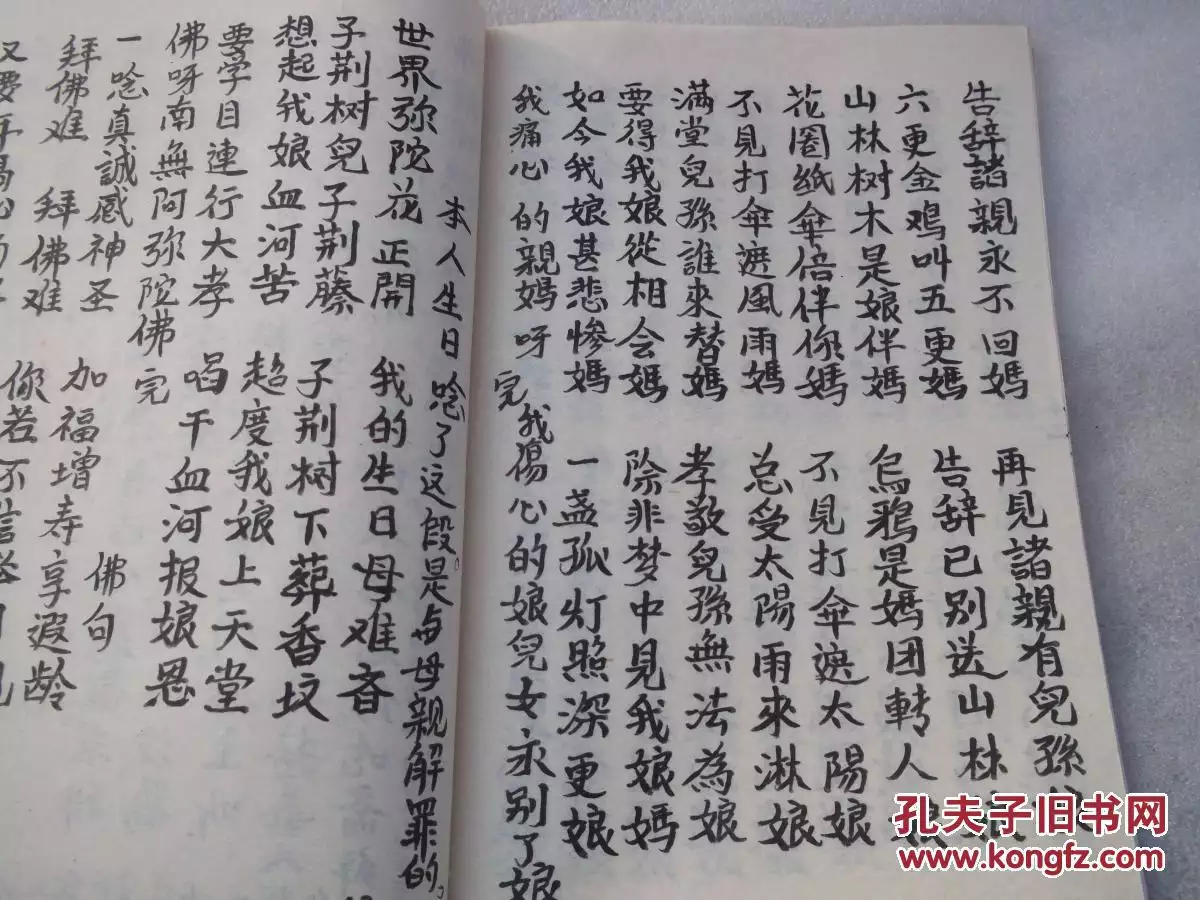 告辞諸親永不回媽 再見諸親有兒孫
六更金鸡叫五更媽 告辞已别送山林娘
山林树木是娘伴媽 烏鴉是媽团轉人娘
花圈纸傘倍伴你媽 不見打傘遮太陽娘
不見打傘遮風雨媽 总受太陽雨來淋娘
满堂兒孫誰來替媽 孝敬兒孫無法為娘
要得我娘從相会媽 除非梦中見我娘媽
如今我娘甚悲惨媽 一盏孤灯照深更娘
我痛心的親媽呀 我傷心的娘兒女永别了娘
完
本人生日唸了这段。是与母親解罪的。
世界弥陀花正開 我的生日母难斉
子荆树兒子荆藤 子荆树下葬香坟
想起我娘血河苦 超度我娘上天堂
要学目連行大孝 喝干血河报娘恩
佛呀南無阿弥陀佛 完
一唸真誠感神圣 佛句
拜佛难 拜佛难 加福增寿享遐龄
你若不信
孔夫子旧书网
www.kongfz.com